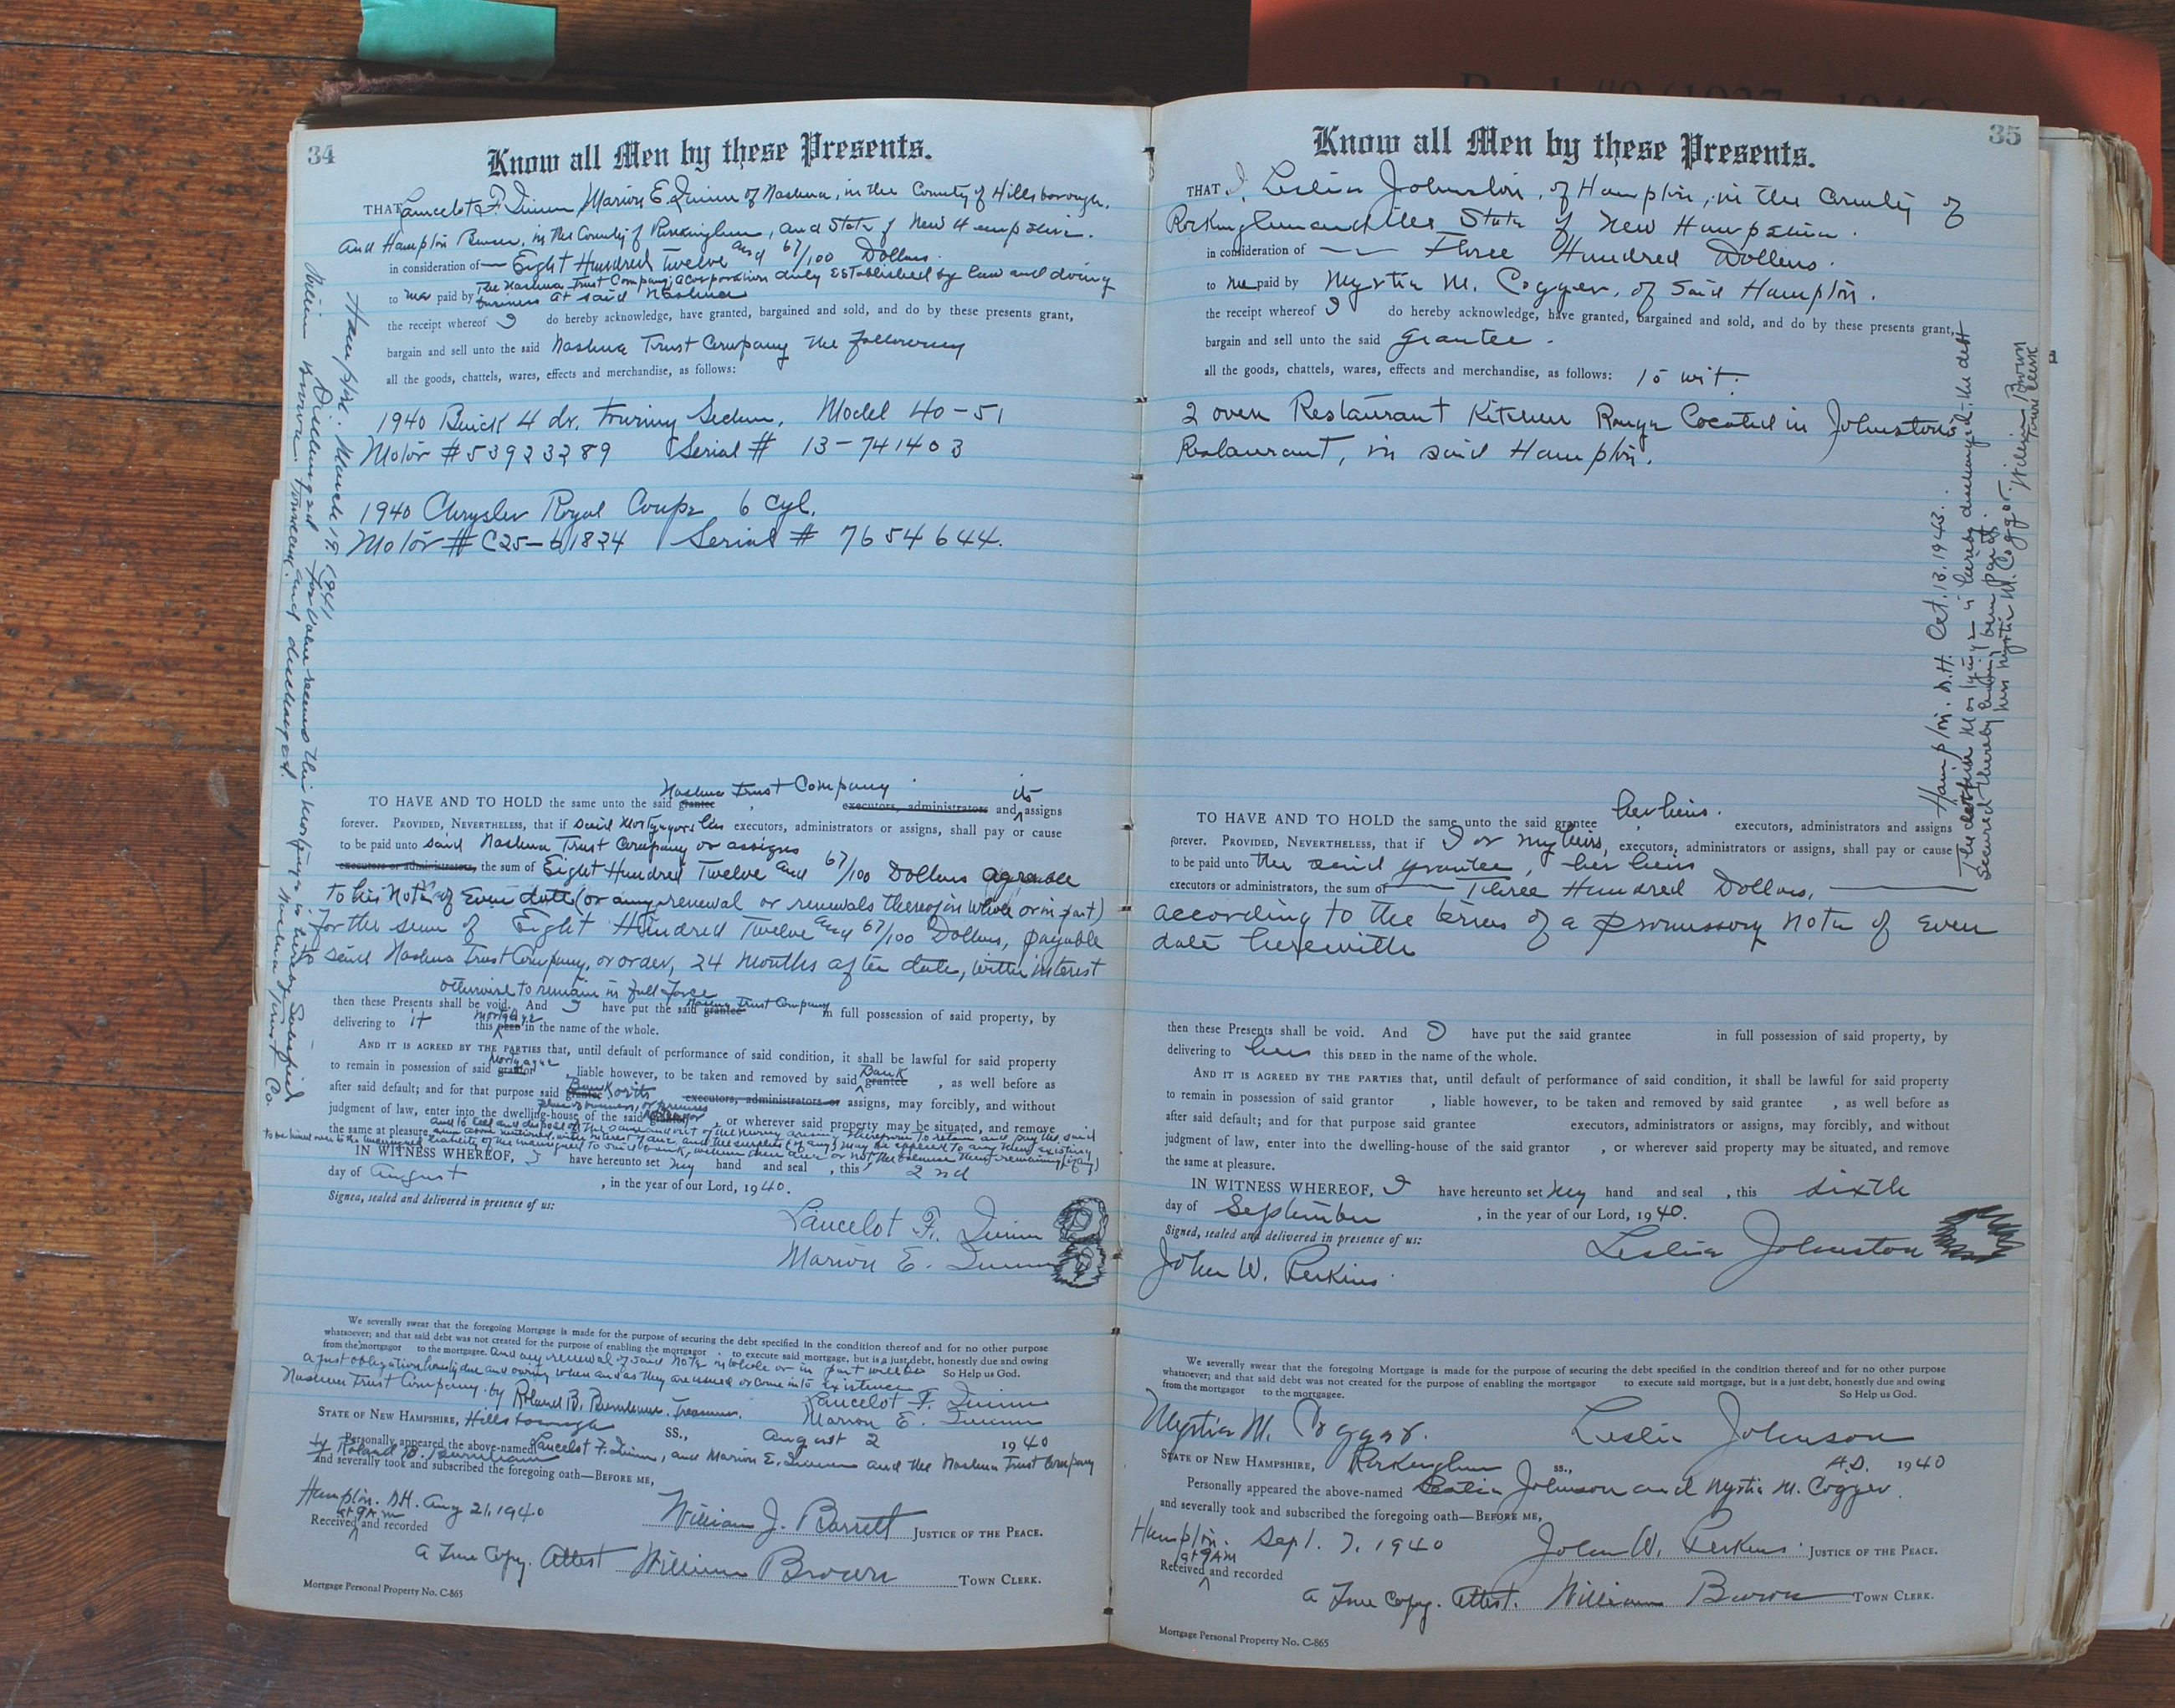 34
Know all Men by these Presents.
THAT Lancelot F. Quinn, Marion E. Quinn of Nashua, in the County of Hillsborough,
and Hampton Beach, in the County of Rockingham, and State of New Hampshire.
in consideration of — Eight Hundred Twelve and 67/100 Dollars.
to me paid by The Nashua Trust Company, a corporation duly established by law and doing
business at said Nashua
the receipt whereof I do hereby acknowledge, have granted, bargained and sold, and do by these presents grant,
bargain and sell unto the said Nashua Trust Company the following
all the goods, chattels, wares, effects and merchandise, as follows:
1940 Buick 4 dr. Touring Sedan, Model 40-51
Motor # 53923289 Serial # 13-741403
1940 Chrysler Royal Coupe 6 cyl.
Motor # C25-61824 Serial # 7654644.
Nashua Trust Company its
TO HAVE AND TO HOLD the same unto the said grantee executors, administrators and assigns
forever. PROVIDED, NEVERTHELESS, that if said Mortgagors his executors, administrators or assigns, shall pay or cause
to be paid unto said Nashua Trust Company or assigns
executors or administrators, the sum of Eight Hundred Twelve and 67/100 Dollars agreeable
to his Note of even date (or any renewal or renewals thereof in whole or in part)
for the sum of Eight Hundred Twelve and 67/100 Dollars, payable
to said Nashua Trust Company, or order, 24 months after date, with interest
otherwise to remain in full force
then these Presents shall be void. And I have put the said grantee Nashua Trust Company in full possession of said property, by
delivering to it this DEED Mortgage in the name of the whole.
AND IT IS AGREED BY THE PARTIES that, until default of performance of said condition, it shall be lawful for said property
to remain in possession of said grantor Mortgagor, liable however, to be taken and removed by said grantee Bank, as well before as
after said default; and for that purpose said grantee Bank or its executors, administrators or assigns, may forcibly, and without
judgment of law, enter into the dwelling-house place of business, or premises of the said grantor, or wherever said property may be situated, and remove
the same at pleasure, and to sell and dispose of the same and out of the money arising therefrom to retain and pay the said
IN WITNESS WHEREOF, I have hereunto set my hand and seal, this 2nd
day of August, in the year of our Lord, 1940.
Signed, sealed and delivered in presence of us:
Lancelot F. Quinn
Marion E. Quinn
We severally swear that the foregoing Mortgage is made for the purpose of securing the debt specified in the condition thereof and for no other purpose
whatsoever; and that said debt was not created for the purpose of enabling the mortgagor to execute said mortgage, but is a just debt, honestly due and owing
from the mortgagor to the mortgagee. And any renewal of said note in whole or in part will be So Help us God.
a just obligation honestly due and owing when and as they are issued or come into existence
Nashua Trust Company. by Roland B. Burnham. Treasurer. Lancelot F. Quinn
Marion E. Quinn
STATE OF NEW HAMPSHIRE, Hillsborough ss., August 2 1940
Personally appeared the above-named Lancelot F. Quinn, and Marion E. Quinn and the Nashua Trust Company
by Roland B. Burnham
and severally took and subscribed the foregoing oath—BEFORE ME,
Hampton. N.H. Aug 21, 1940
at 9 AM William J. Barrett JUSTICE OF THE PEACE.
Received and recorded
A True Copy. Attest William Brown TOWN CLERK.
Mortgage Personal Property No. C-865
Hampton. March 19. 1941
Discharged For value received this mortgage is hereby satisfied
and discharged. Nashua Trust Co.
William Brown. Town Clerk.
35
Know all Men by these Presents.
THAT I, Leslie Johnston, of Hampton, in the County of
Rockingham and the State of New Hampshire.
in consideration of —— Three Hundred Dollars.
to me paid by Myrtie M. Cogger, of said Hampton.
the receipt whereof I do hereby acknowledge, have granted, bargained and sold, and do by these presents grant,
bargain and sell unto the said grantee.
all the goods, chattels, wares, effects and merchandise, as follows: to wit:
2 oven Restaurant Kitchen Range Located in Johnstons
Restaurant, in said Hampton.
TO HAVE AND TO HOLD the same unto the said grantee, her heirs. executors, administrators and assigns
forever. PROVIDED, NEVERTHELESS, that if I or my heirs, executors, administrators or assigns, shall pay or cause
to be paid unto the said grantee, her heirs
executors or administrators, the sum of —— Three Hundred Dollars, ——
according to the terms of a promissory note of even
date herewith
then these Presents shall be void. And I have put the said grantee in full possession of said property, by
delivering to her this DEED in the name of the whole.
AND IT IS AGREED BY THE PARTIES that, until default of performance of said condition, it shall be lawful for said property
to remain in possession of said grantor, liable however, to be taken and removed by said grantee, as well before as
after said default; and for that purpose said grantee executors, administrators or assigns, may forcibly, and without
judgment of law, enter into the dwelling-house of the said grantor, or wherever said property may be situated, and remove
the same at pleasure.
IN WITNESS WHEREOF, I have hereunto set my hand and seal, this sixth
day of September, in the year of our Lord, 1940.
Signed, sealed and delivered in presence of us:
John W. Perkins. Leslie Johnston
We severally swear that the foregoing Mortgage is made for the purpose of securing the debt specified in the condition thereof and for no other purpose
whatsoever; and that said debt was not created for the purpose of enabling the mortgagor to execute said mortgage, but is a just debt, honestly due and owing
from the mortgagor to the mortgagee. So Help us God.
Myrtie M. Cogger. Leslie Johnson
STATE OF NEW HAMPSHIRE, Rockingham ss., A.D. 1940
Personally appeared the above-named Leslie Johnson and Myrtie M. Cogger.
and severally took and subscribed the foregoing oath—BEFORE ME,
Hampton. Sept. 7, 1940
at 9 AM John W. Perkins. JUSTICE OF THE PEACE.
Received and recorded
A True Copy. Attest. William Brown TOWN CLERK.
Mortgage Personal Property No. C-865
Hampton. N.H. Oct. 13. 1943.
The within Mortgage is hereby discharged, the debt
secured thereby having been paid.
Myrtie M. Cogger.
William Brown
Town Clerk